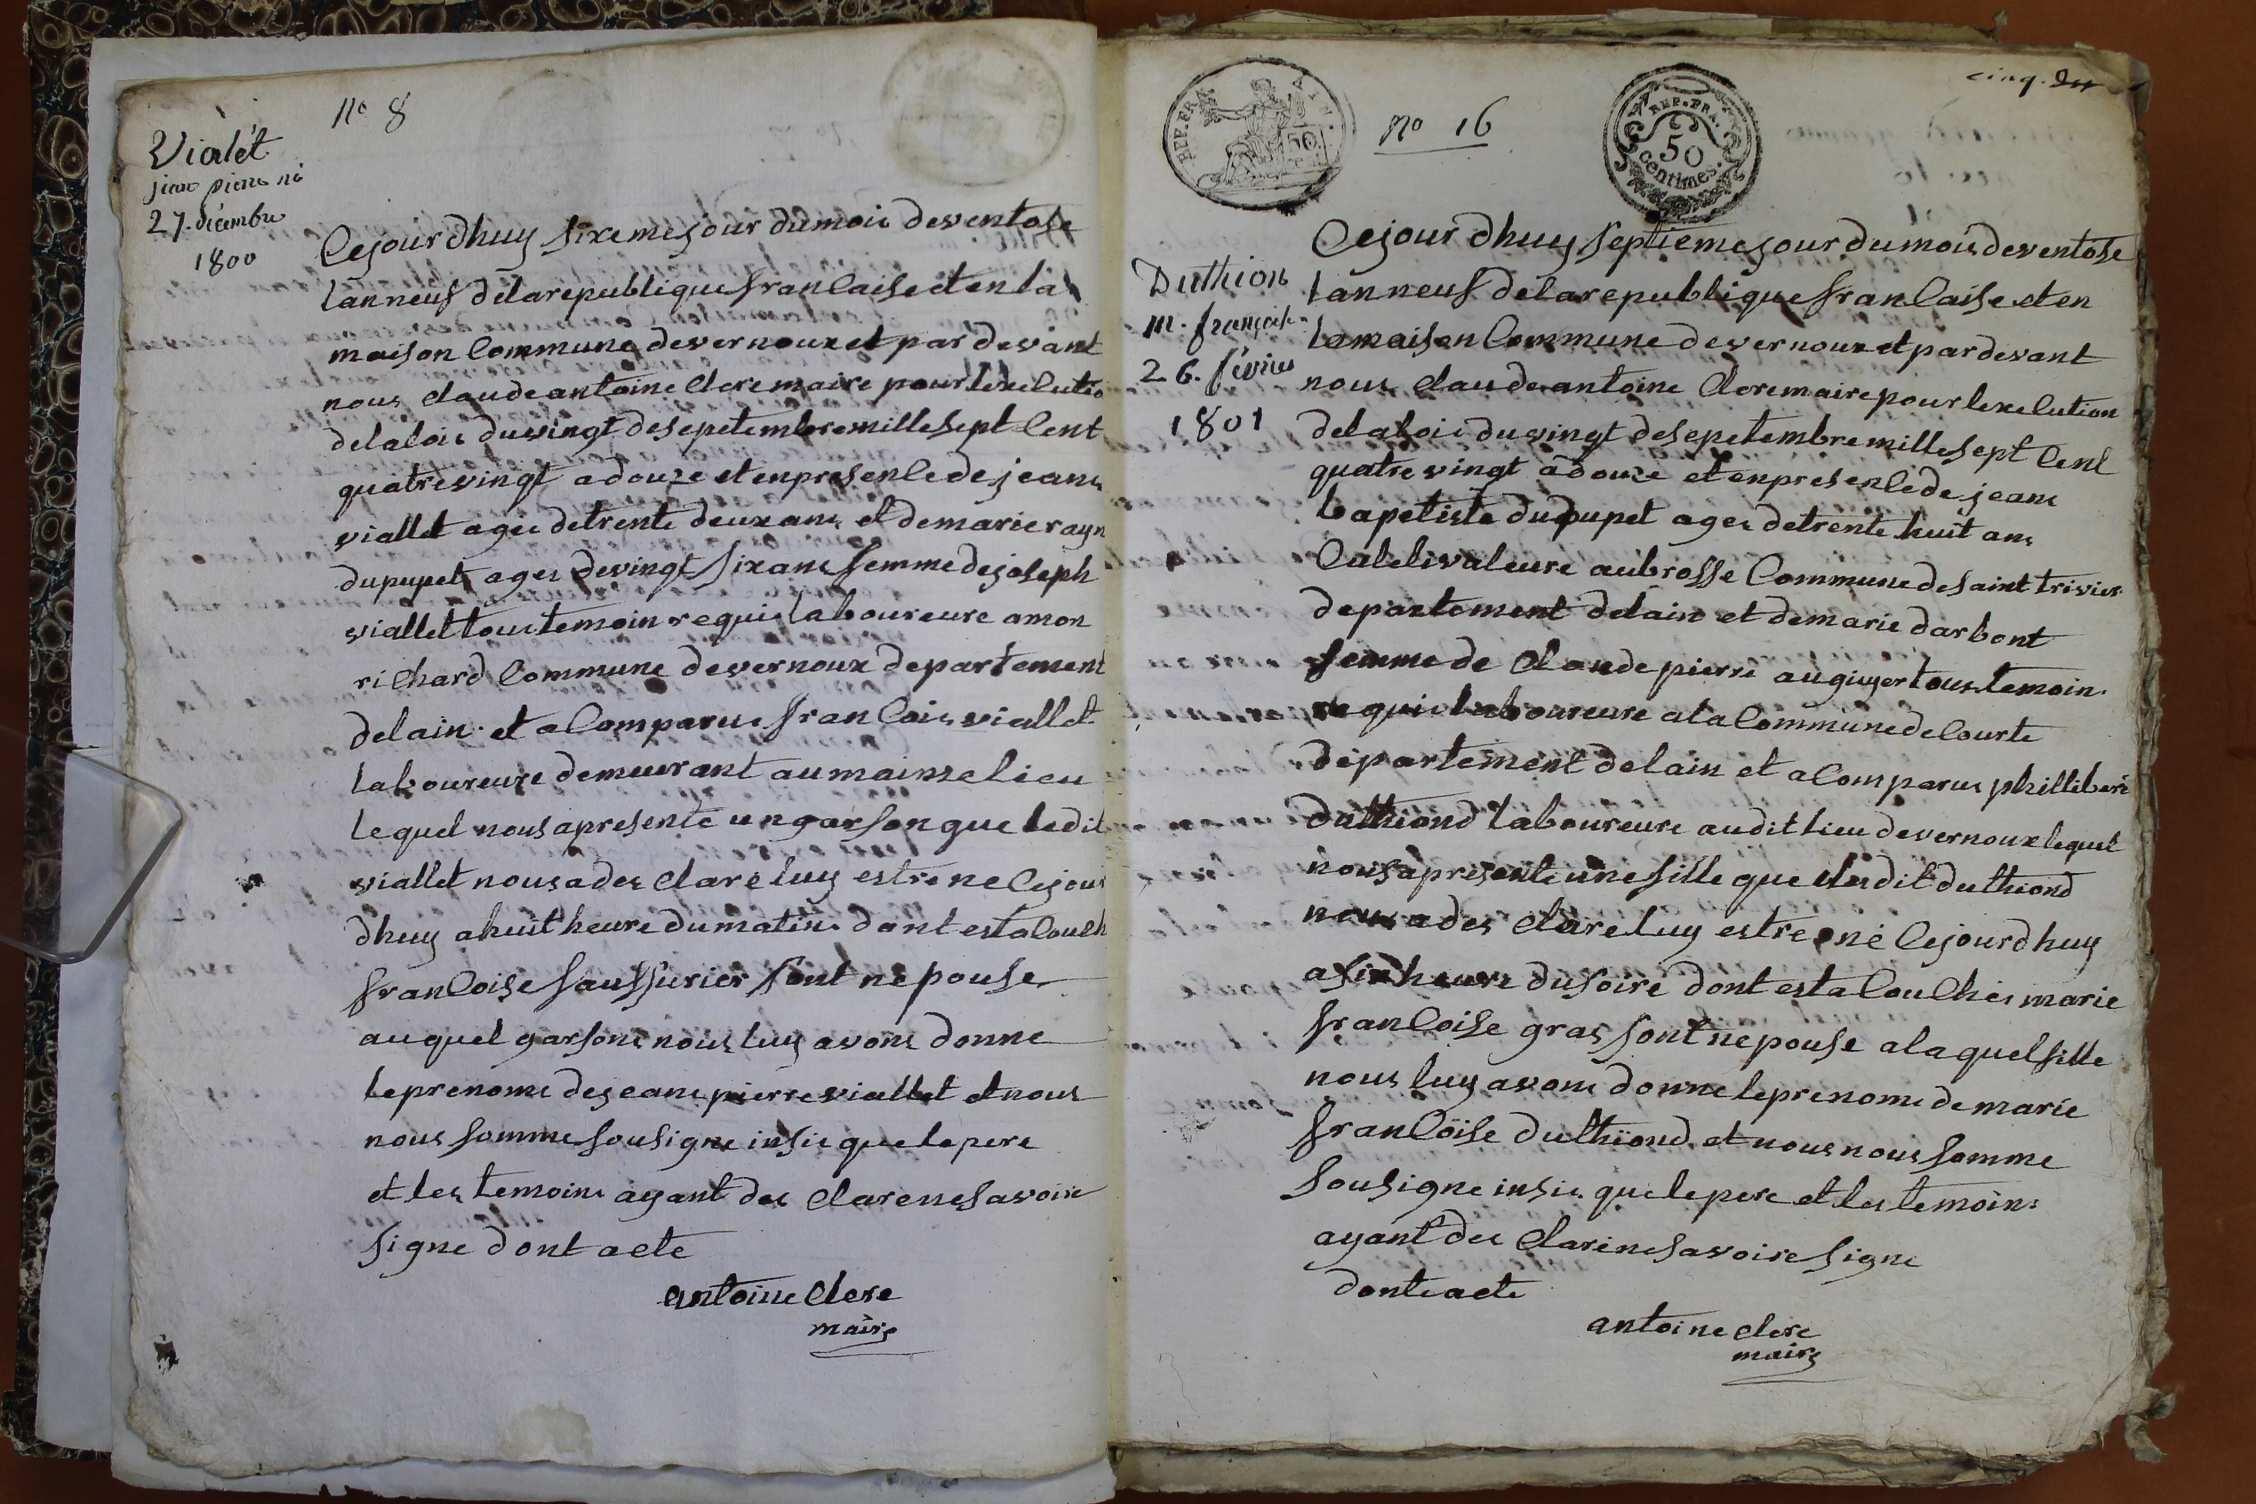 No 8
Vialét
jean pierre né
27. décembre
1800
Cejour dhuy sixeme jour du moic de ventose
lan neuf delarepublique francaise et en la
maison Commune de vernoux et par devant
nous claude antoine clere maire pour lexecutio
delaloic du vingt desepetembre mille sept Cent
quatre vingt a douze et en presence de jeane
viallet agee de trente deux ans et de marie rayn
dupupet agee de vingt six ans femme de joseph
viallet tous temoin requis laboureure a mon
richard Commune de vernoux departement
delain et a Comparue francois viallet
laboureure demeurant au maime lieu
lequel nous a presente un garson que ledit
viallet nous a des clare luy estre ne Cejour
dhuy a huit heure du matin dont est a Couch
francoise saussurier sont nepouse
au quel garsone nous luy avons donne
le prenome de jeane pierre viallet et nous
nous somme sousigne insie que le pere
et les temoins ayant des clare ne savoire
signe dont acte
antoine clere
maire
cinq.
REP. FRA.
50
No 16
REP. FRA.
50
centimes.
Duthion
m. françoise
26. février
1801
Cejour dhuy septieme jour du mois de ventose
lan neuf delarepublique francaise et en
la maison Commune de vernoux et par devant
nous claude antoine clere maire pour lexecution
delaloic du vingt desepetembre mille sept Cent
quatre vingt a douze et en presence de jeane
bapetiste dupupet agee de trente huit ans
Culetivateure au brosse Commune de saint trivier
departement delain et de marie darbont
femme de claude pierre augiuyer tous temoin
requis laboureure a la Commune de Courte
departement delain et a Comparue phillibere
duthiond laboureure au dit lieu de vernoux lequel
nous a presente une fille que le dit duthiond
nous a des clare luy estre né Cejourdhuy
a six heure du soire dont est a Couchée marie
francoise gras sont nepouse a la quel fille
nous luy avons donne le prenome de marie
francoise duthiond et nous nous somme
sousigne insie que le pere et les temoins
ayant des clare ne savoire signe
dont acte
antoine clere
maire